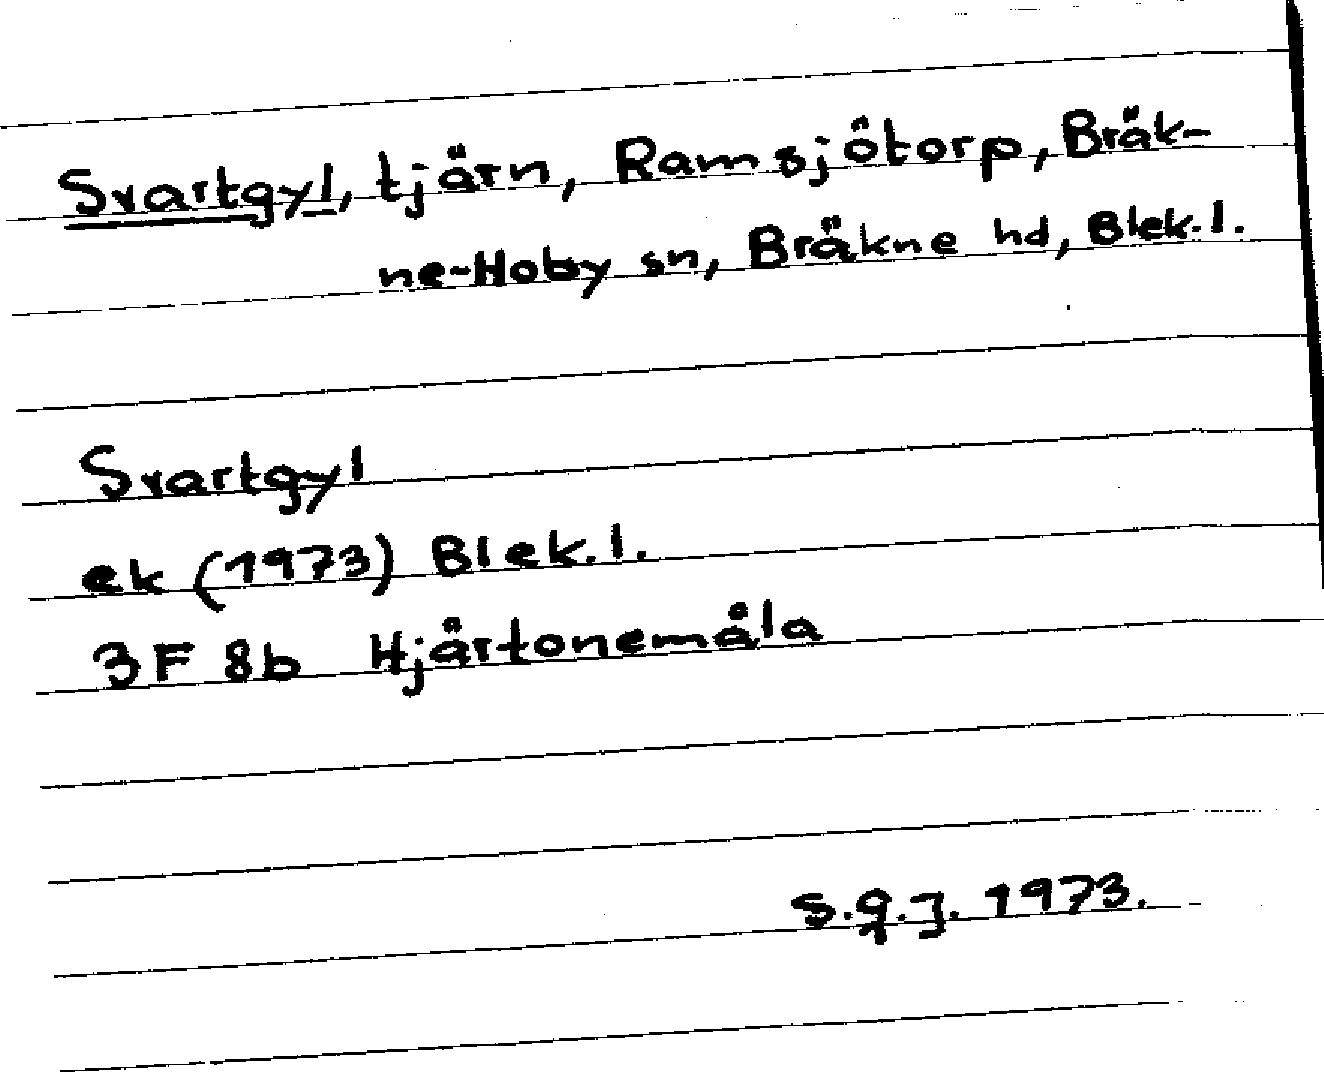 Svartgyl, tjärn, Ramsjötorp, Bräk-
ne-Hoby sn, Bräkne hd, Blek. l.
Svartgyl
ek (1973) Blek. l.
3F 8b Hjärtonemåla
S.G.J. 1973.